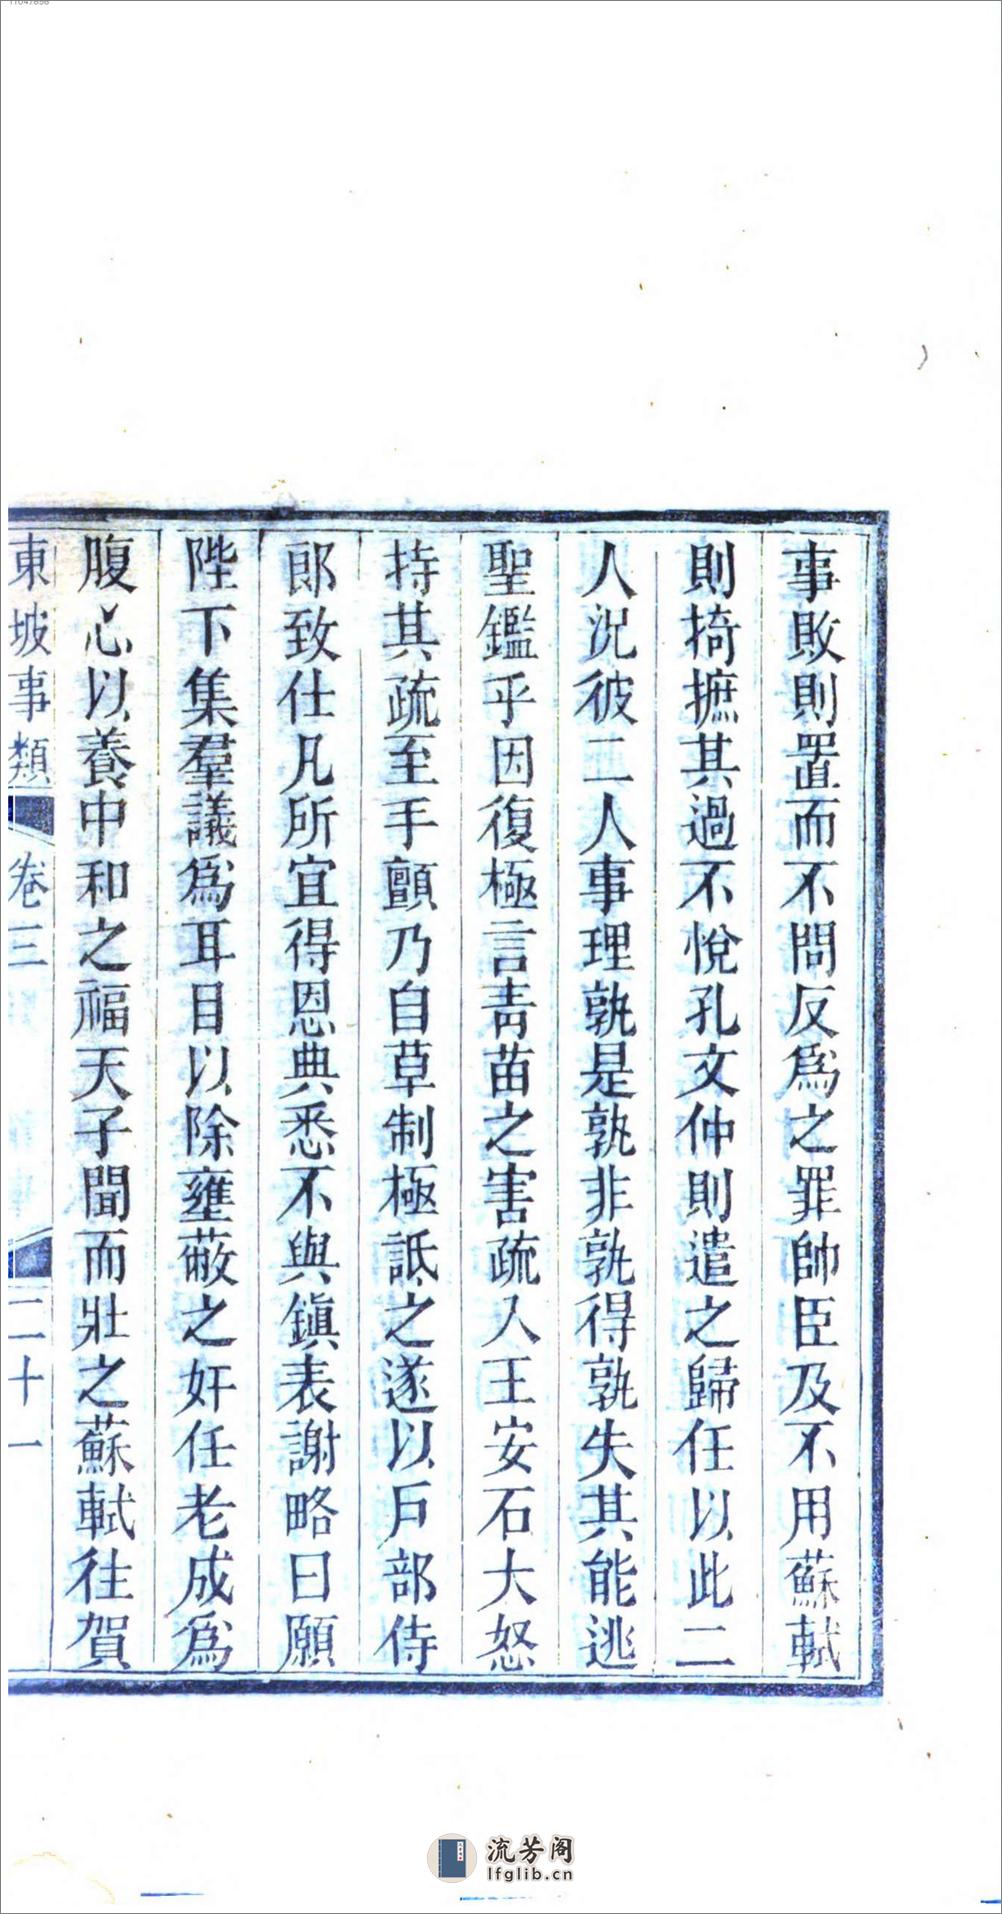 事敗則置而不問反爲之罪帥臣及不用蘇軾
則掎摭其過不悅孔文仲則遣之歸任以此二
人況彼二人事理孰是孰非孰得孰失其能逃
聖鑑乎因復極言靑苗之害疏入王安石大怒
持其疏至手顫乃自草制極詆之遂以戶部侍
郎致仕凡所宜得恩典悉不與鎭表謝略曰願
陛下集羣議爲耳目以除壅蔽之奸任老成爲
腹心以養中和之福天子聞而壯之蘇軾往賀
東坡事類 卷三 二十一
流芳阁
lfglib.cn